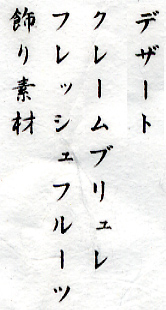 デザート
クレームブリュレ
フレッシュフルーツ
飾り素材